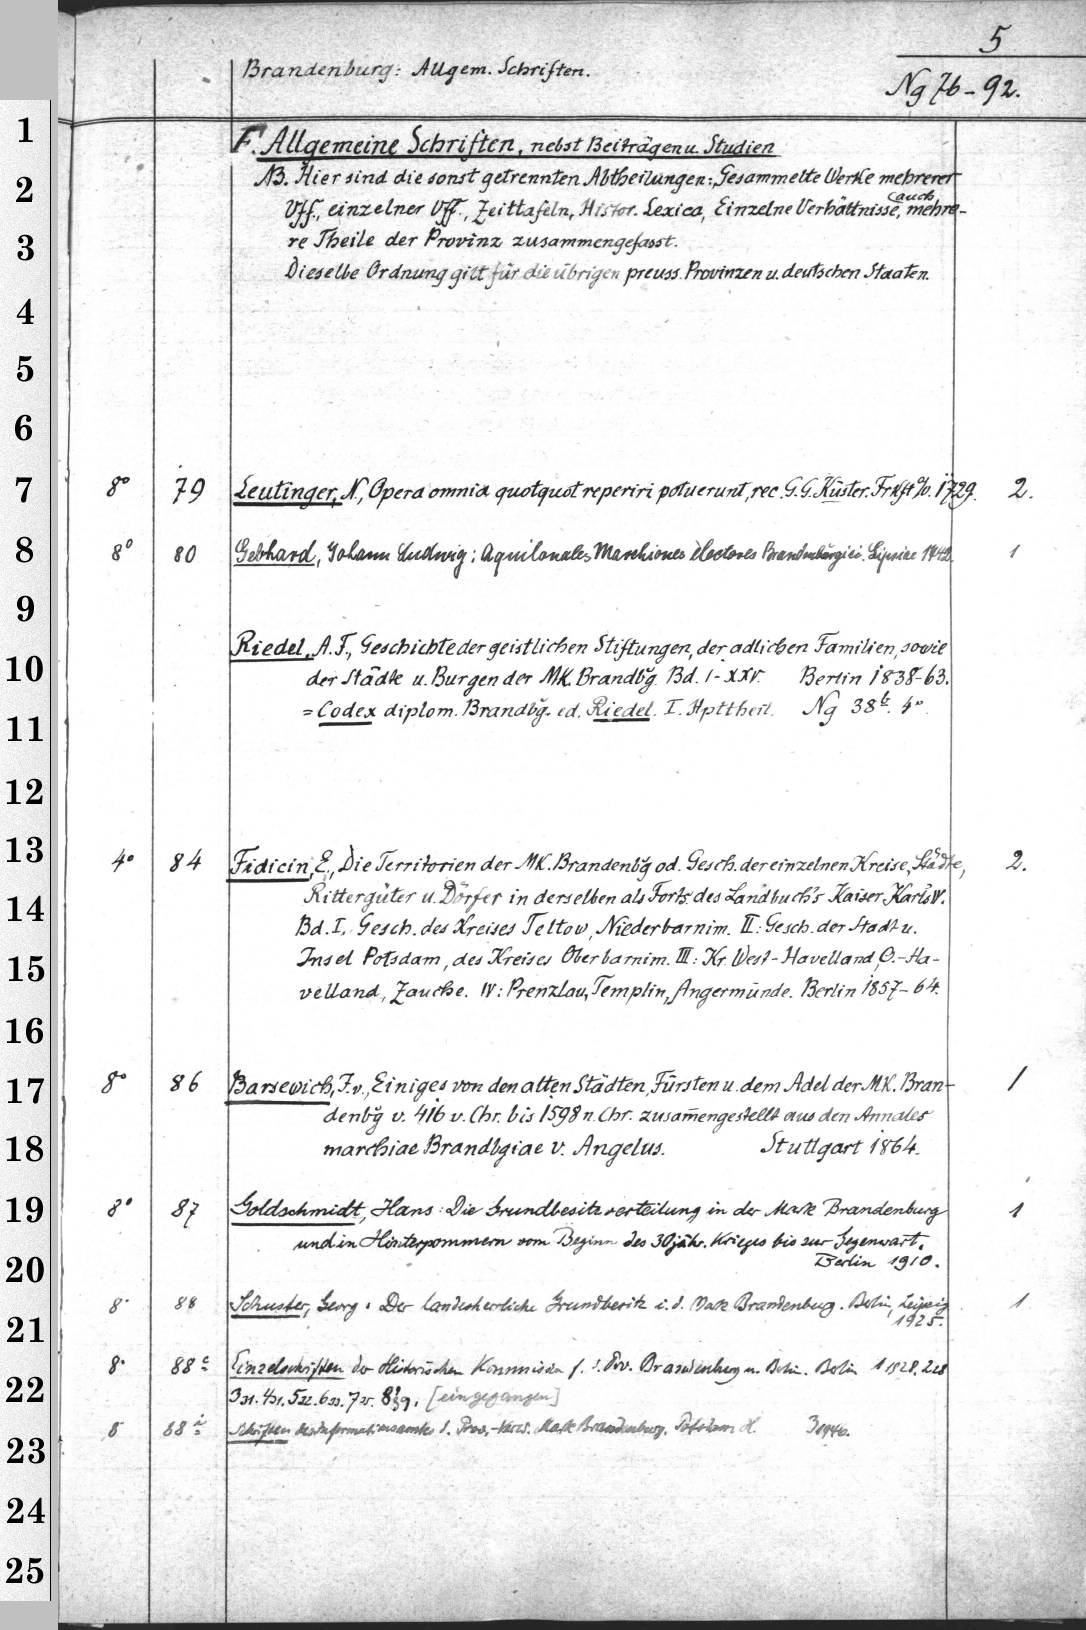 5
Brandenburg: Allgem. Schriften.
Ng 76-92.
F. Allgemeine Schriften, nebst Beiträgen u. Studien
NB. Hier sind die sonst getrennten Abtheilungen: Gesammelte Werke mehrerer
Vff., einzelner Vff., Zeittafeln, Histor. Lexica, Einzelne Verhältnisse, auch mehre-
re Theile der Provinz zusammengefasst.
Dieselbe Ordnung gilt für die übrigen preuss. Provinzen u. deutschen Staaten.
8° 79 Leutinger, N., Opera omnia quotquot reperiri potuerunt, rec. G. G. Küster. Frkft a/O. 1729. 2.
8° 80 Gebhard, Johann Ludwig: Aquilonales Marchiones electores Brandenburgici. Lipsiae 1742. 1
Riedel, A. F., Geschichte der geistlichen Stiftungen, der adlichen Familien, sowie
der Städte u. Burgen der MK. Brandbg. Bd. I-XXV. Berlin 1838-63.
= Codex diplom. Brandbg. ed. Riedel. I. Hpttheil. Ng 38 b. 4°.
4° 84 Fidicin, E., Die Territorien der MK. Brandenbg od. Gesch. der einzelnen Kreise, Städte, 2.
Rittergüter u. Dörfer in derselben als Forts. des Landbuch's Kaiser Karls IV.
Bd. I. Gesch. des Kreises Teltow, Niederbarnim. II: Gesch. der Stadt u.
Insel Potsdam, des Kreises Oberbarnim. III: Kr. West-Havelland, O.-Ha-
velland, Zauche. IV: Prenzlau, Templin, Angermünde. Berlin 1857-64.
8° 86 Barsewich, F. v., Einiges von den alten Städten, Fürsten u. dem Adel der MK. Bran- 1
denbg v. 416 v. Chr. bis 1598 n. Chr. zusamengestellt aus den Annales
marchiae Brandbgiae v. Angelus. Stuttgart 1864.
8° 87 Goldschmidt, Hans: Die Grundbesitzverteilung in der Mark Brandenburg 1
und in Hinterpommern vom Beginn des 30jähr. Krieges bis zur Gegenwart.
Berlin 1910.
8° 88 Schuster, Georg: Der landesherrliche Grundbesitz i. d. Mark Brandenburg. Berlin, Leipzig 1
1925.
8° 88 c Einzelschriften der Historischen Kommission f. d. Prov. Brandenburg u. Berlin. Berlin 1 1928. 2 28
3 31. 4 31. 5 32. 6 33. 7 35. 8 39. [eingegangen]
8 88 i Schriften des Informationsamtes d. Prov.-Verw. Mark Brandenburg. Potsdam 3 1946.
1
2
3
4
5
6
7
8
9
10
11
12
13
14
15
16
17
18
19
20
21
22
23
24
25